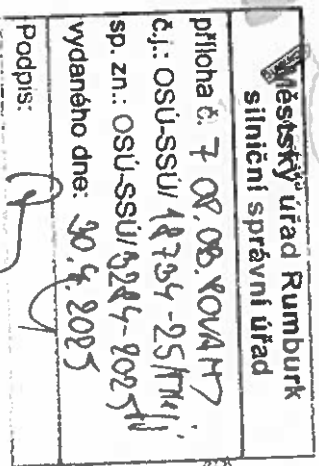 Městský úřad Rumburk
silniční správní úřad
příloha č. 7
č.j.: OSÚ-SSÚ/18734-25/
sp. zn.: OSÚ-SSÚ/
vydaného dne: 30.4.2025
Podpis: